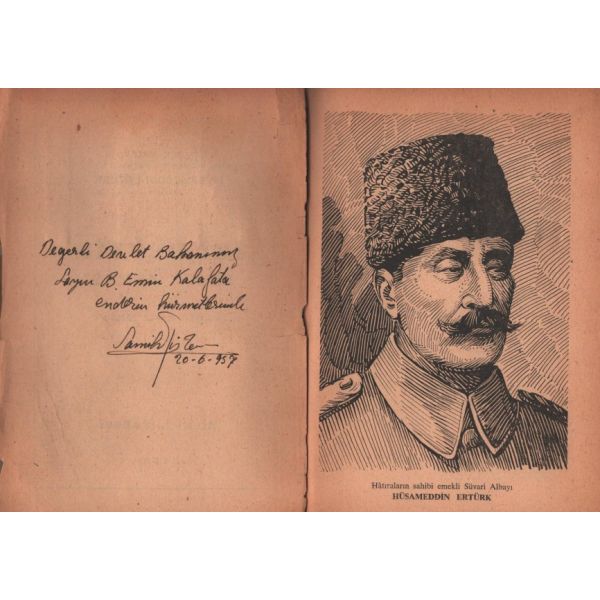 Değerli Devlet Bakanımız
Sayın B. Emin Kalafata
enderin hürmetlerimle
20-6-957
Hâtıraların sahibi emekli Süvari Albayı
HÜSAMEDDİN ERTÜRK